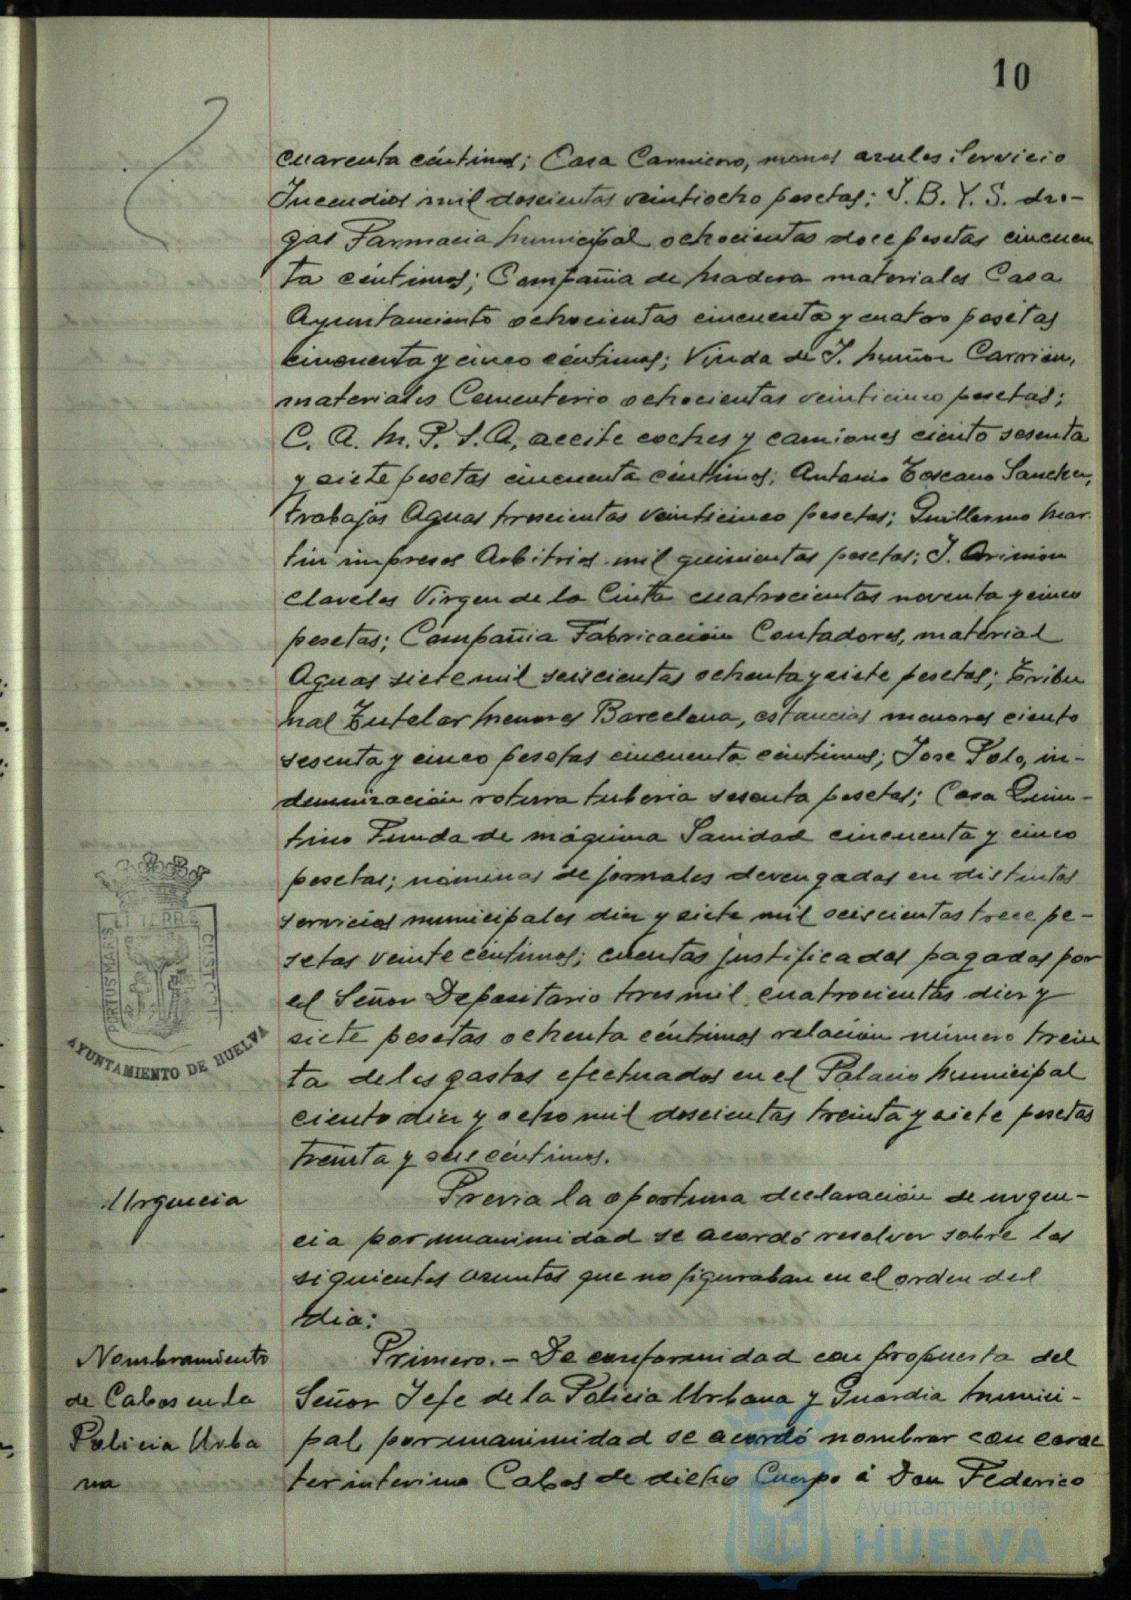 10
cuarenta céntimos; Casa Carnicero, monos azules Servicio
Incendios mil doscientas veintiocho pesetas; I. B. Y. S. dro-
gas Farmacia Municipal ochocientas doce pesetas cincuen
ta céntimos; Compañia de Madera materiales Casa
Ayuntamiento ochocientas cincuenta y cuatro pesetas
cincuenta y cinco céntimos; Viuda de J. Muñoz Carrión,
materiales Cementerio ochocientas veinticinco pesetas;
C. A. M. P. S. A. aceite coches y camiones ciento sesenta
y siete pesetas cincuenta céntimos; Antonio Toscano Sanchez,
trabajos Aguas trescientas veinticinco pesetas; Guillermo Mar-
tin impresos Arbitrios mil quinientas pesetas; J.
claveles Virgen de la Cinta cuatrocientas noventa y cinco
pesetas; Compañia Fabricación Contadores, material
Aguas siete mil seiscientas ochenta y siete pesetas; Tribu
nal Tutelar Menores Barcelona, estancias menores ciento
sesenta y cinco pesetas cincuenta céntimos; Jose Polo, in-
demnización rotura tuberia sesenta pesetas; Casa Quin-
tino Funda de máquina Sanidad cincuenta y cinco
pesetas; nóminas de jornales devengadas en distintos
servicios municipales diez y siete mil seiscientas trece pe-
setas veinte céntimos; cuentas justificadas pagadas por
el Señor Depositario tres mil cuatrocientas diez y
siete pesetas ochenta céntimos relación número trein
ta de los gastos efectuados en el Palacio Municipal
ciento diez y ocho mil doscientas treinta y siete pesetas
treinta y seis céntimos.
Urgencia
Previa la oportuna declaración de urgen-
cia por unanimidad se acordó resolver sobre los
siguientes asuntos que no figuraban en el orden del
dia:
Nombramiento
de Cabos en la
Policia Urba
na
Primero.- De conformidad con propuesta del
Señor Jefe de la Policia Urbana y Guardia Munici-
pal por unanimidad se acordó nombrar con carac
ter interino Cabos de dicho Cuerpo á Don Federico
PORTUS MARIS
ET TERRE
CUSTODI
AYUNTAMIENTO DE HUELVA
Ayuntamiento de
HUELVA